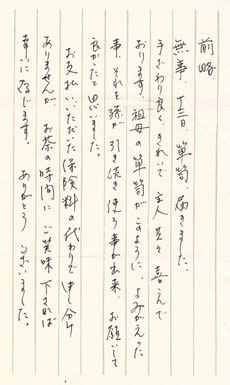 前略
無事、十三日 箪笥、届きました。
手ざわり良く、きれいで 主人共々 喜んで
おります。祖母の箪笥がこのように、よみがえった
事、それを孫が引き続き使う事が出来、お願いして
良かったと思いました。
お支払いいただいた保険料の代わりで申し分け
ありませんが、お茶の時間にご笑味下されば
幸いに存じます。ありがとうございました。